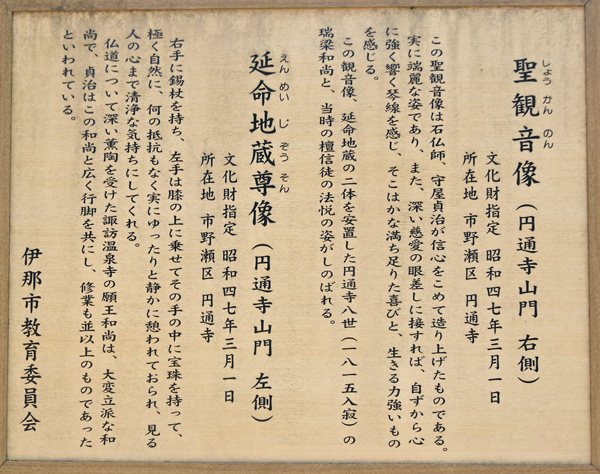 しょう かん のん
聖観音像（円通寺山門 右側）
文化財指定 昭和四七年三月一日
所在地 市野瀬区 円通寺
この聖観音像は石仏師、守屋貞治が信心をこめて造り上げたものである。
実に端麗な姿であり、また、深い慈愛の眼差しに接すれば、自ずから心
に強く響く琴線を感じ、そこはかな満ち足りた喜びと、生きる力強いもの
を感じる。
この観音像、延命地蔵の二体を安置した円通寺八世（一八一五入寂）の
瑞梁和尚と、当時の檀信徒の法悦の姿がしのばれる。
えん めい じ ぞう そん
延命地蔵尊像（円通寺山門 左側）
文化財指定 昭和四七年三月一日
所在地 市野瀬区 円通寺
右手に錫杖を持ち、左手は膝の上に乗せてその手の中に宝珠を持って、
極く自然に、何の抵抗もなく実にゆったりと静かに憩われておられ、見る
人の心まで清浄な気持ちにしてくれる。
仏道について深い薫陶を受けた諏訪温泉寺の願王和尚は、大変立派な和
尚で、貞治はこの和尚と広く行脚を共にし、修業も並以上のものであった
といわれている。
伊那市教育委員会